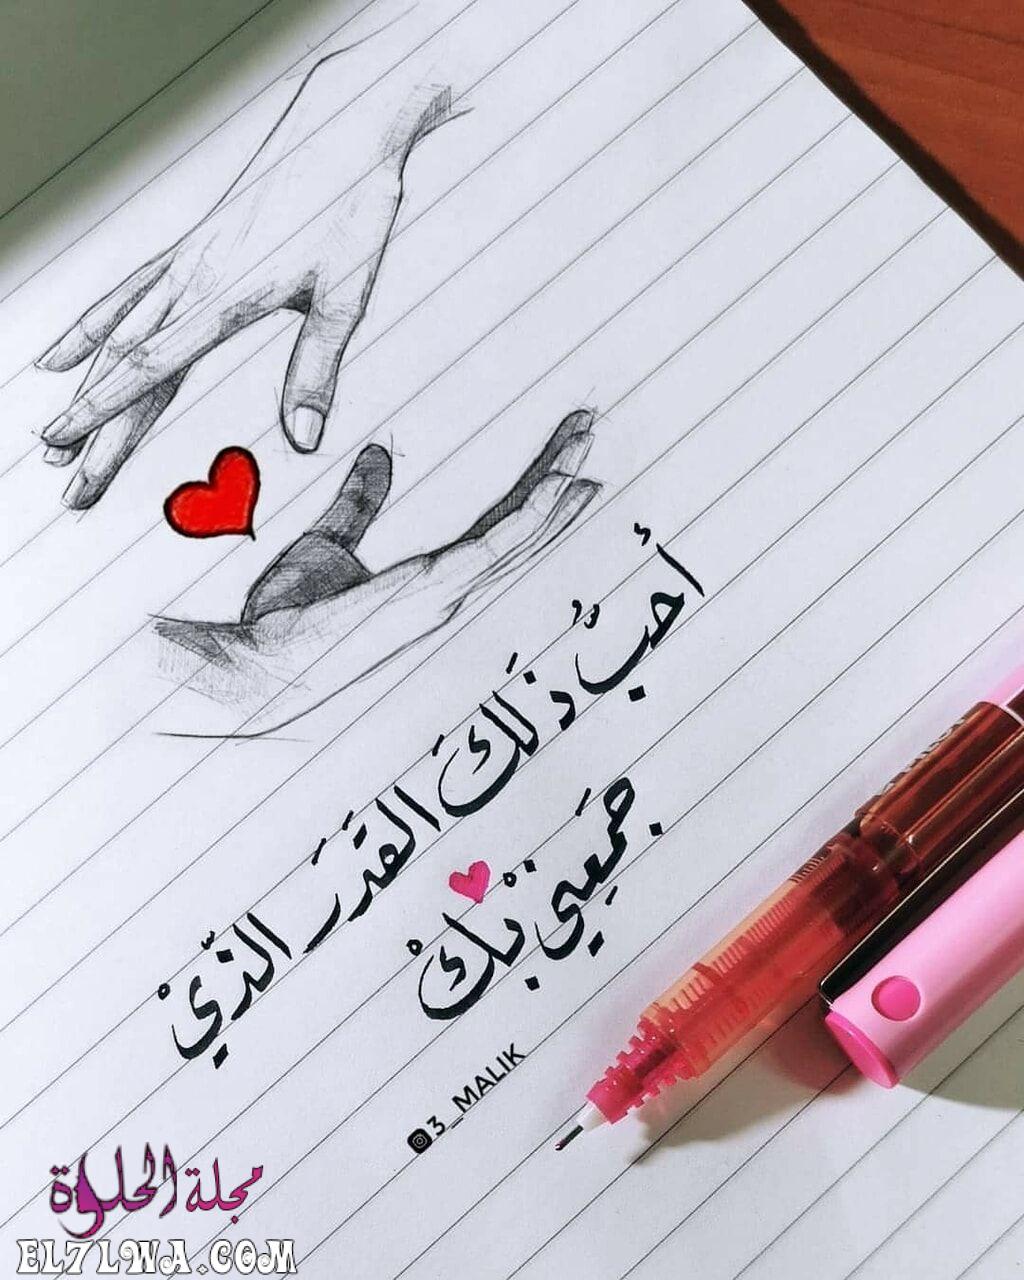 أحبُّ ذَلكَ القَدَرَ الذّيْ
جَمَعِني بْكْ
3_MALIK
مجلة الحلوة
EL7L9WA.COM